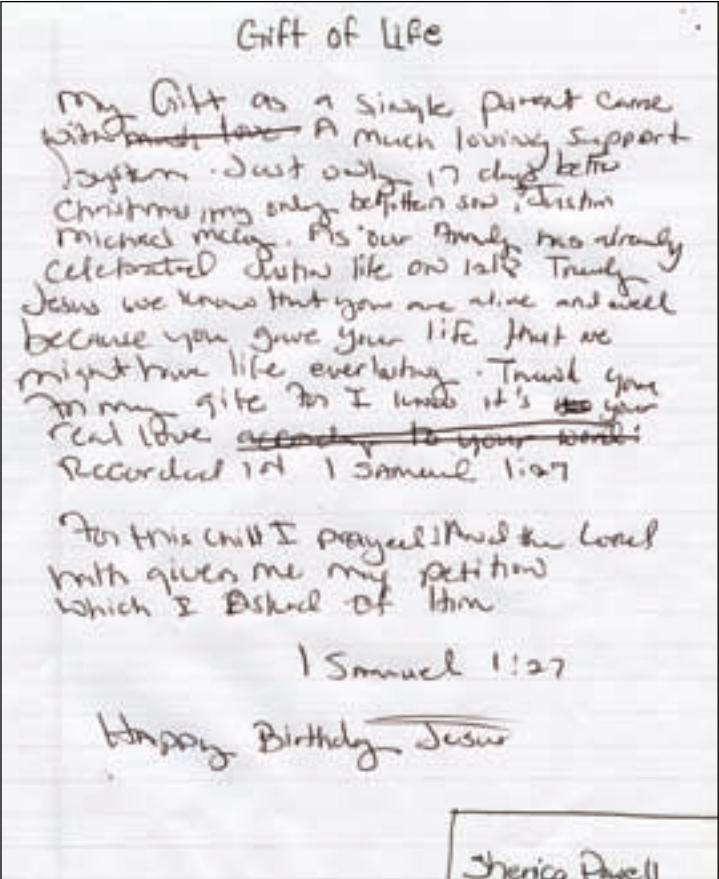 Gift of Life
My Gift as a single parent came
with much love A much loving support
system. Just only 17 days before
Christmas, my only begotten son, Justin
Michael. As our family has already
celebrated Justin life on Truly
Jesus we know that you are alive and well
because you gave your life that we
might have life everlasting. Thank you
for my gift for I know it's your
real love according to your word:
Recorded in 1 Samuel 1:27
For this child I prayed: And the Lord
hath given me my petition
which I Asked of Him
1 Samuel 1:27
Happy Birthday Jesus
Sherica Powell